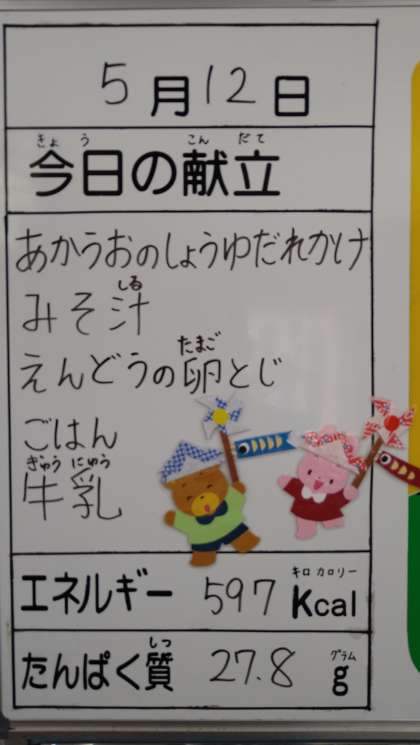 5月12日
きょう こん だて
今日の献立
あかうおのしょうゆだれかけ
しる
みそ汁
たまご
えんどうの卵とじ
ごはん
ぎゅう にゅう
牛乳
キロ カロリー
エネルギー 597 Kcal
しつ グラム
たんぱく質 27.8 g